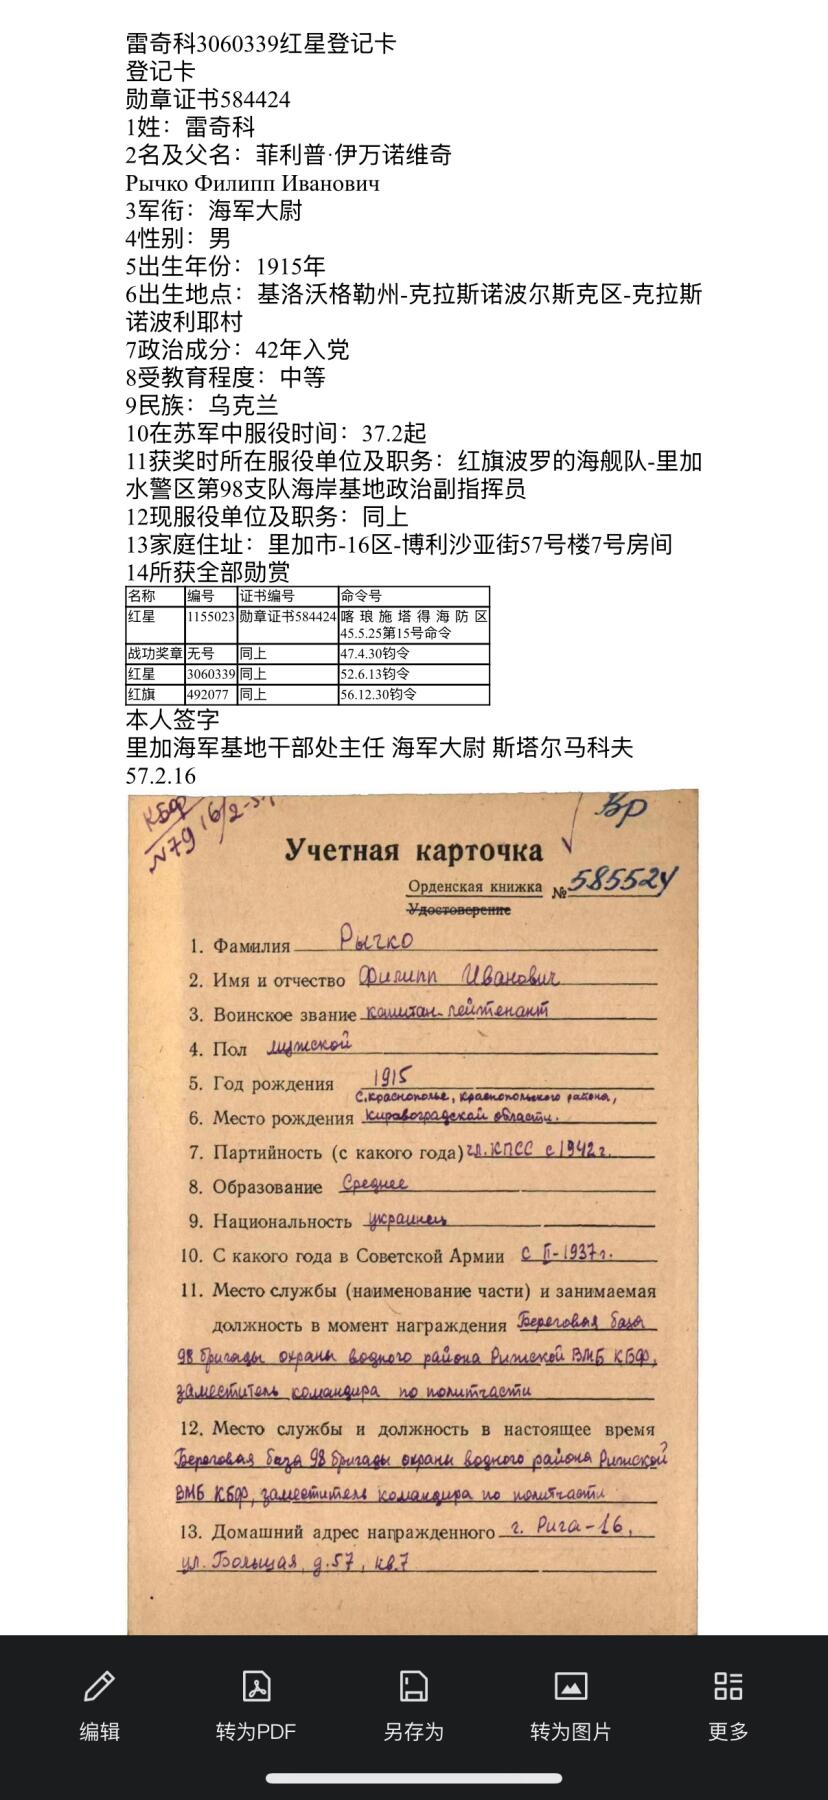 雷奇科3060339红星登记卡
登记卡
勋章证书584424
1姓：雷奇科
2名及父名：菲利普·伊万诺维奇
Рычко Филипп Иванович
3军衔：海军大尉
4性别：男
5出生年份：1915年
6出生地点：基洛沃格勒州-克拉斯诺波尔斯克区-克拉斯
诺波利耶村
7政治成分：42年入党
8受教育程度：中等
9民族：乌克兰
10在苏军中服役时间：37.2起
11获奖时所在服役单位及职务：红旗波罗的海舰队-里加
水警区第98支队海岸基地政治副指挥员
12现服役单位及职务：同上
13家庭住址：里加市-16区-博利沙亚街57号楼7号房间
14所获全部勋赏
名称 编号 证书编号 命令号
红星 1155023 勋章证书584424 喀琅施塔得海防区
45.5.25第15号命令
战功奖章 无号 同上 47.4.30钧令
红星 3060339 同上 52.6.13钧令
红旗 492077 同上 56.12.30钧令
本人签字
里加海军基地干部处主任 海军大尉 斯塔尔马科夫
57.2.16
КБФ 16/2-57
N79
Вр
Учетная карточка
Орденская книжка № 585524
Удостоверение
1. Фамилия Рычко
2. Имя и отчество Филипп Иванович
3. Воинское звание капитан-лейтенант
4. Пол мужской
5. Год рождения 1915
с. Краснополье, Краснопольского района,
6. Место рождения Кировоградской области.
7. Партийность (с какого года) чл. КПСС с 1942г.
8. Образование Среднее
9. Национальность украинец
10. С какого года в Советской Армии с II-1937г.
11. Место службы (наименование части) и занимаемая
должность в момент награждения Береговая база
98 бригады охраны водного района Рижской ВМБ КБФ,
заместитель командира по политчасти
12. Место службы и должность в настоящее время
Береговая база 98 бригады охраны водного района Рижской
ВМБ КБФ, заместитель командира по политчасти
13. Домашний адрес награжденного г. Рига-16,
ул. Большая, д.57, кв.7
编辑 转为PDF 另存为 转为图片 更多